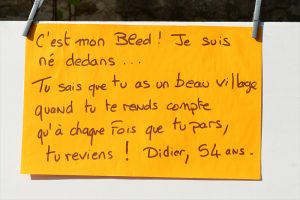 C'est mon Bled ! Je suis
né dedans ...
Tu sais que tu as un beau village
quand tu te rends compte
qu'à chaque fois que tu pars,
tu reviens ! Didier, 54 ans.